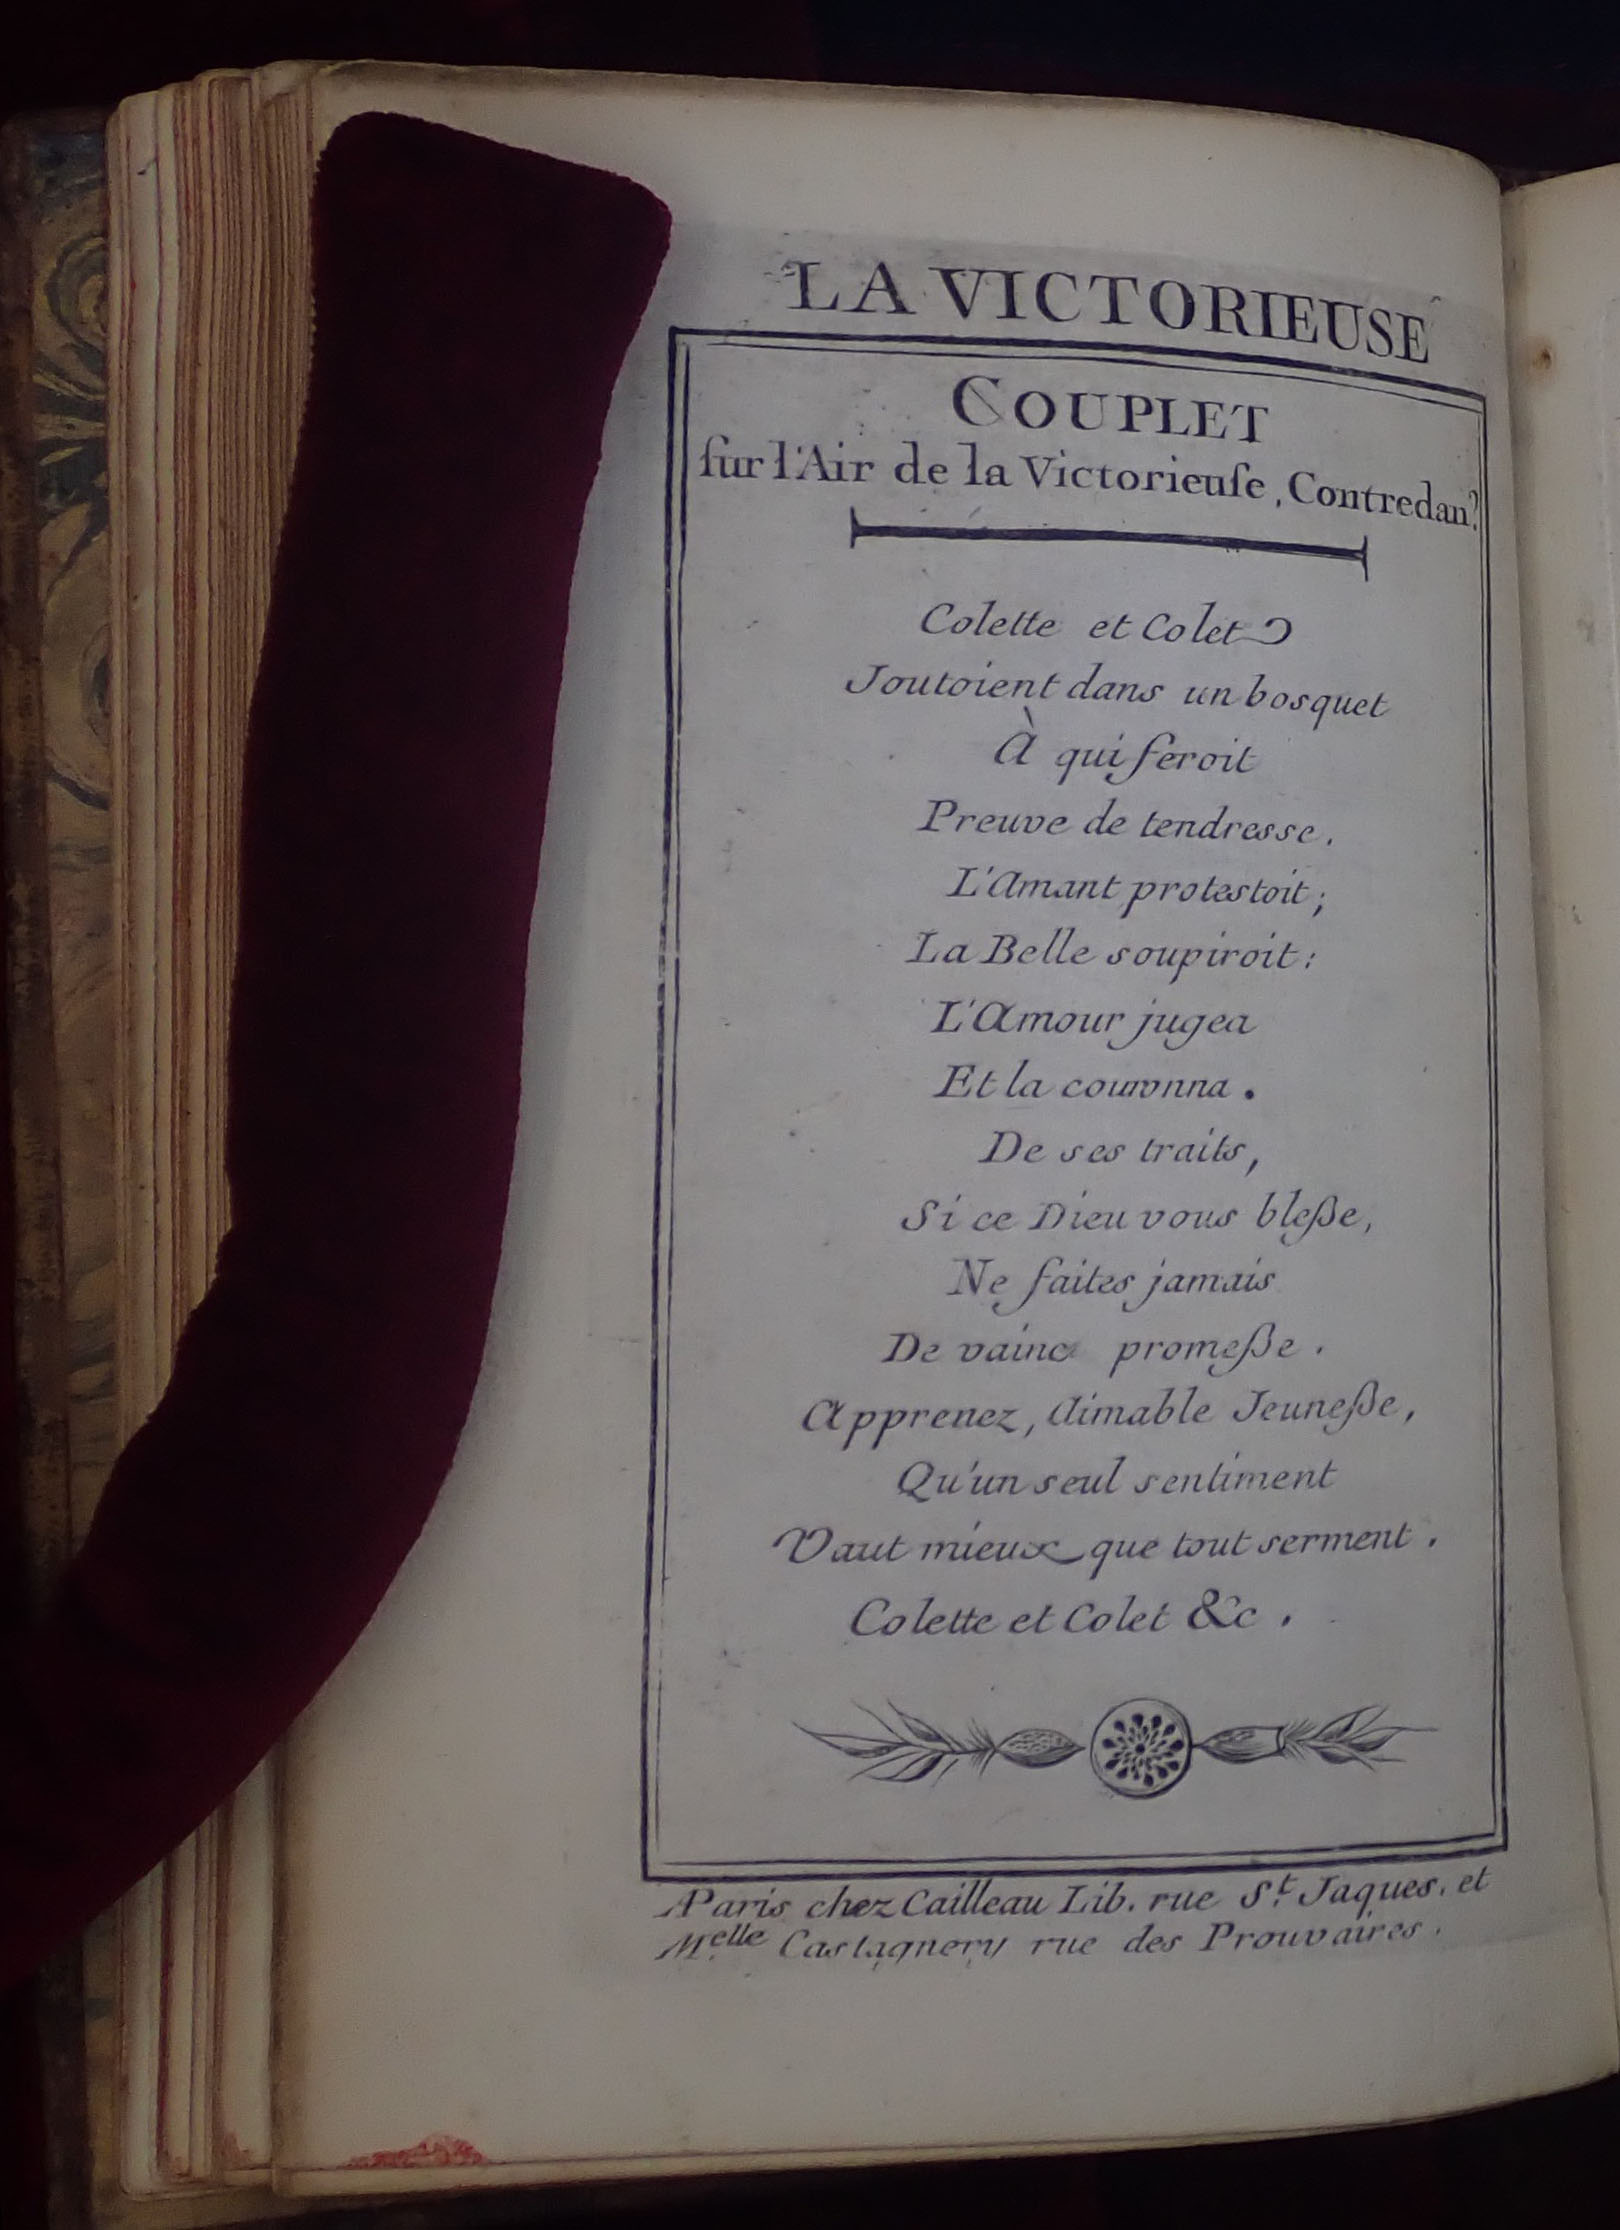 LA VICTORIEUSE
COUPLET
ſur l'Air de la Victorieuſe, Contredan.ᵉ
Colette et Colet
Joutoient dans un bosquet
À qui ſeroit
Preuve de tendresse.
L'Amant protestoit;
La Belle soupiroit:
L'Amour jugea
Et la couronna.
De ses traits,
Si ce Dieu vous bleße,
Ne faites jamais
De vaine promeße.
Apprenez, Aimable Jeuneße,
Qu'un seul sentiment
Vaut mieux que tout serment.
Colette et Colet &c.
A Paris chez Cailleau Lib. rue S.ᵗ Jaques. et
M.ᵉˡˡᵉ Castagnery rue des Prouvaires.